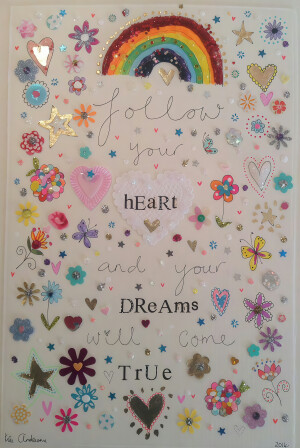 follow
your
hEaRt
and your
DReAms
will come
TrUe
2016